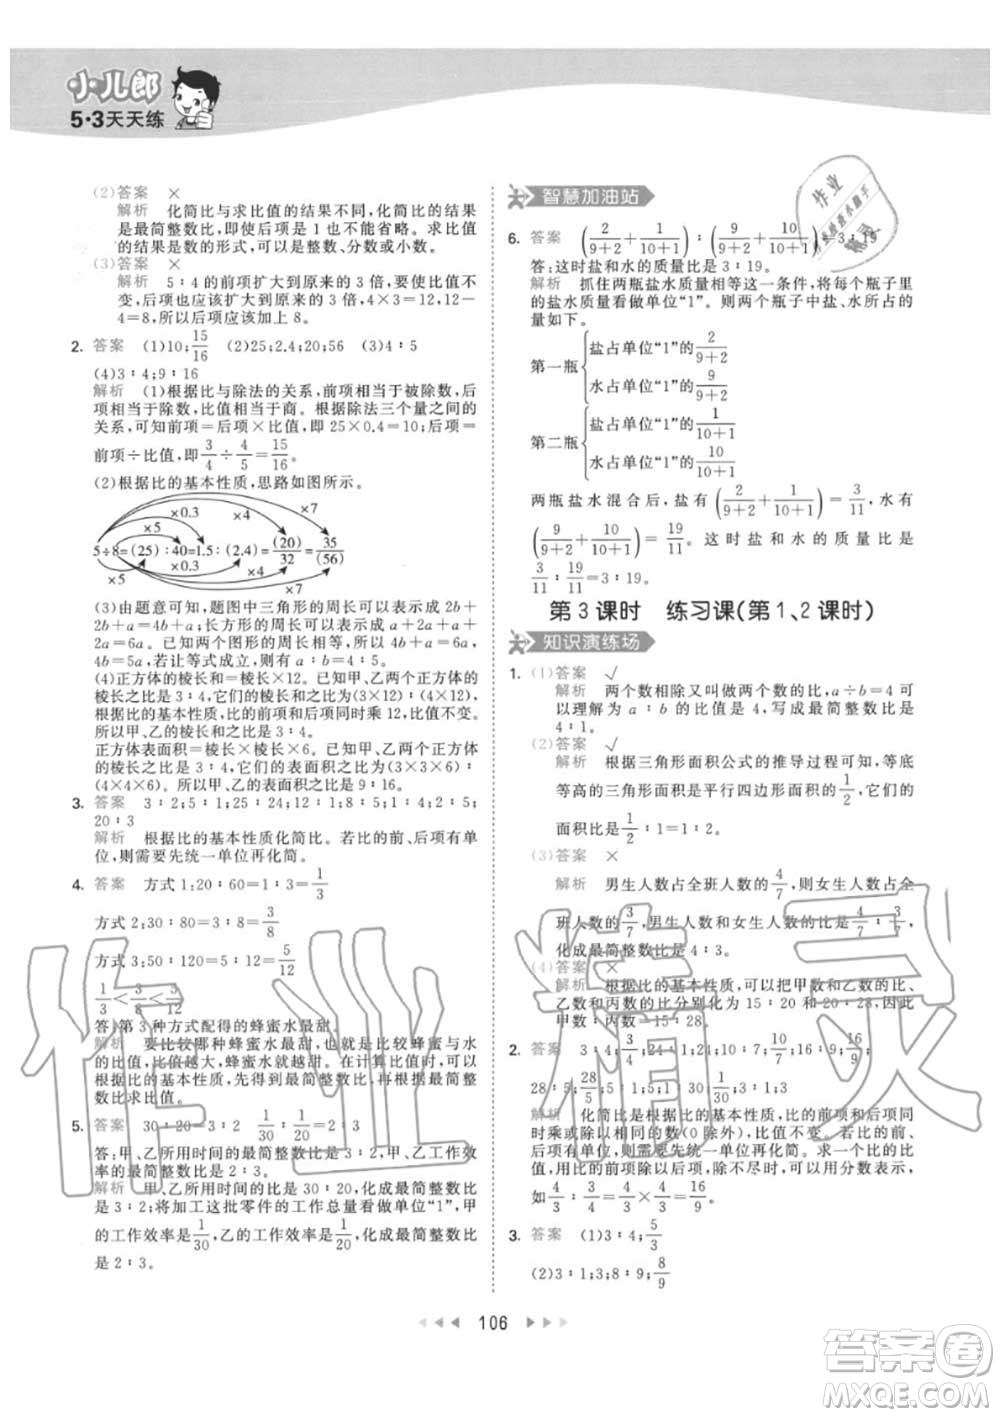 小儿郎
5·3天天练
(2)答案 ×
解析 化简比与求比值的结果不同,化简比的结果
是最简整数比,即使后项是1也不能省略。求比值的
结果是数的形式,可以是整数、分数或小数。
(3)答案 ×
解析 5∶4的前项扩大到原来的3倍,要使比值不
变,后项也应该扩大到原来的3倍,4×3=12,12-
4=8,所以后项应该加上8。
2. 答案 (1)10;15/16 (2)25;2.4;20;56 (3)4∶5
(4)3∶4;9∶16
解析 (1)根据比与除法的关系,前项相当于被除数,后
项相当于除数,比值相当于商。根据除法三个量之间的
关系,前项=后项×比值,即25×0.4=10;后项=
前项÷比值,即3/4÷4/5=15/16。
(2)根据比的基本性质,思路如图所示。
×7
×4
×0.3
×5
5÷8=(25)∶40=1.5∶(2.4)=(20)/32=35/(56)
×5
×0.3
×4
×7
(3)由题意可知,题图中三角形的周长可以表示成2b+
2b+2b=6b,长方形的周长可以表示成a+2a+a+
2a=6a。已知两个图形的周长相等,所以可以得出6a=
6b,5a=5b,若让等式成立,则a∶b=4∶5。
(4)正方体棱长和=棱长×12。已知甲、乙两个正方体的
棱长之比是3∶4,它们的棱长和之比是(3×12)∶(4×12),
根据比的基本性质,比的前项和后项同时乘12,比值不变。
所以甲、乙的棱长和之比是3∶4。
正方体表面积=棱长×棱长×6。已知甲、乙两个正方体
的棱长之比是3∶4,它们的表面积之比是(3×3×6)∶
(4×4×6)。所以甲、乙的表面积之比是9∶16。
3. 答案 3∶2;5∶1;24∶1;12∶1;8∶5;1∶4;5∶2;
20∶3
解析 根据比的基本性质化简比。若比的前、后项有单
位,则需要先统一单位再化简。
4. 答案 方式1:20∶60=1∶3=1/3
方式2:30∶80=3∶8=3/8
方式3:50∶120=5∶12=5/12
1/3<3/8<5/12
答:第3种方式配得的蜂蜜水最甜。
解析 要比较哪种蜂蜜水最甜,也就是比较蜂蜜与水
的比值,比值越大,蜂蜜水就越甜。在计算比值时,可以
根据比的基本性质,先得到最简整数比,再根据最简整
数比求比值。
5. 答案 30∶20=3∶2 1/30∶1/20=2∶3
答:甲、乙所用时间的最简整数比是3∶2,甲、乙工作效
率的最简整数比是2∶3。
解析 甲、乙所用时间的比是30∶20,化成最简整数比
是3∶2;将加工这批零件的工作总量看作单位“1”,甲
的工作效率是1/30,乙的工作效率是1/20,化成最简整数比
是2∶3。
智慧加油站
6. 答案 (2/(9+2)+1/(10+1))∶(9/(9+2)+10/(10+1))=3∶19
答:这时盐和水的质量比是3∶19。
解析 抓住两瓶盐水质量相等这一条件,将每个瓶子里
的盐水质量看做单位“1”。则两个瓶子中盐、水所占的
量如下。
第一瓶{盐占单位“1”的2/(9+2)
水占单位“1”的9/(9+2)
第二瓶{盐占单位“1”的1/(10+1)
水占单位“1”的10/(10+1)
两瓶盐水混合后,盐有(2/(9+2)+1/(10+1))=3/11,水有
(9/(9+2)+10/(10+1))=19/11。这时盐水和水的质量比是
3/11∶19/11=3∶19。
第3课时 练习课(第1、2课时)
知识演练场
1. (1)答案 √
解析 两个数相除又叫做两个数的比,a÷b=4可
以理解为a∶b的比值是4,写成最简整数比是
4∶1。
(2)答案 √
解析 根据三角形面积公式的推导过程可知,等底
等高的三角形面积是平行四边形面积的1/2,它们的
面积比是1/2∶1=1∶2。
(3)答案 ×
解析 男生人数占全班人数的4/7,则女生人数占全
班人数的3/7,男生人数和女生人数的比是4/7∶3/7,
化成最简整数比是4∶3。
(4)答案 ×
解析 根据比的基本性质,将甲数和乙数的比、
乙数和丙数的比分别化为15∶20和20∶28,因此
甲数∶丙数=15∶28。
2. 答案 3∶4;3/4;24∶1;24;10∶7;10/7;16∶9;16/9;
28∶5;28/5;5∶1;5;24∶1;24;9∶20;9/20;3∶1;3
解析 化简比根据比的基本性质,比的前项和后项同
时乘或除以相同的数(0除外),比值不变。若有单位不统
一的比,则需要先统一单位再化简。求比的比值可以用
比的前项除以后项,除不尽时,可以用分数表示,
如4/3÷3/4=4/3×4/3=16/9。
3. 答案 (1)3∶4;5/3
(2)3∶1;3;8∶9;8/9
106
作业精灵
答案圈
MXQE.COM